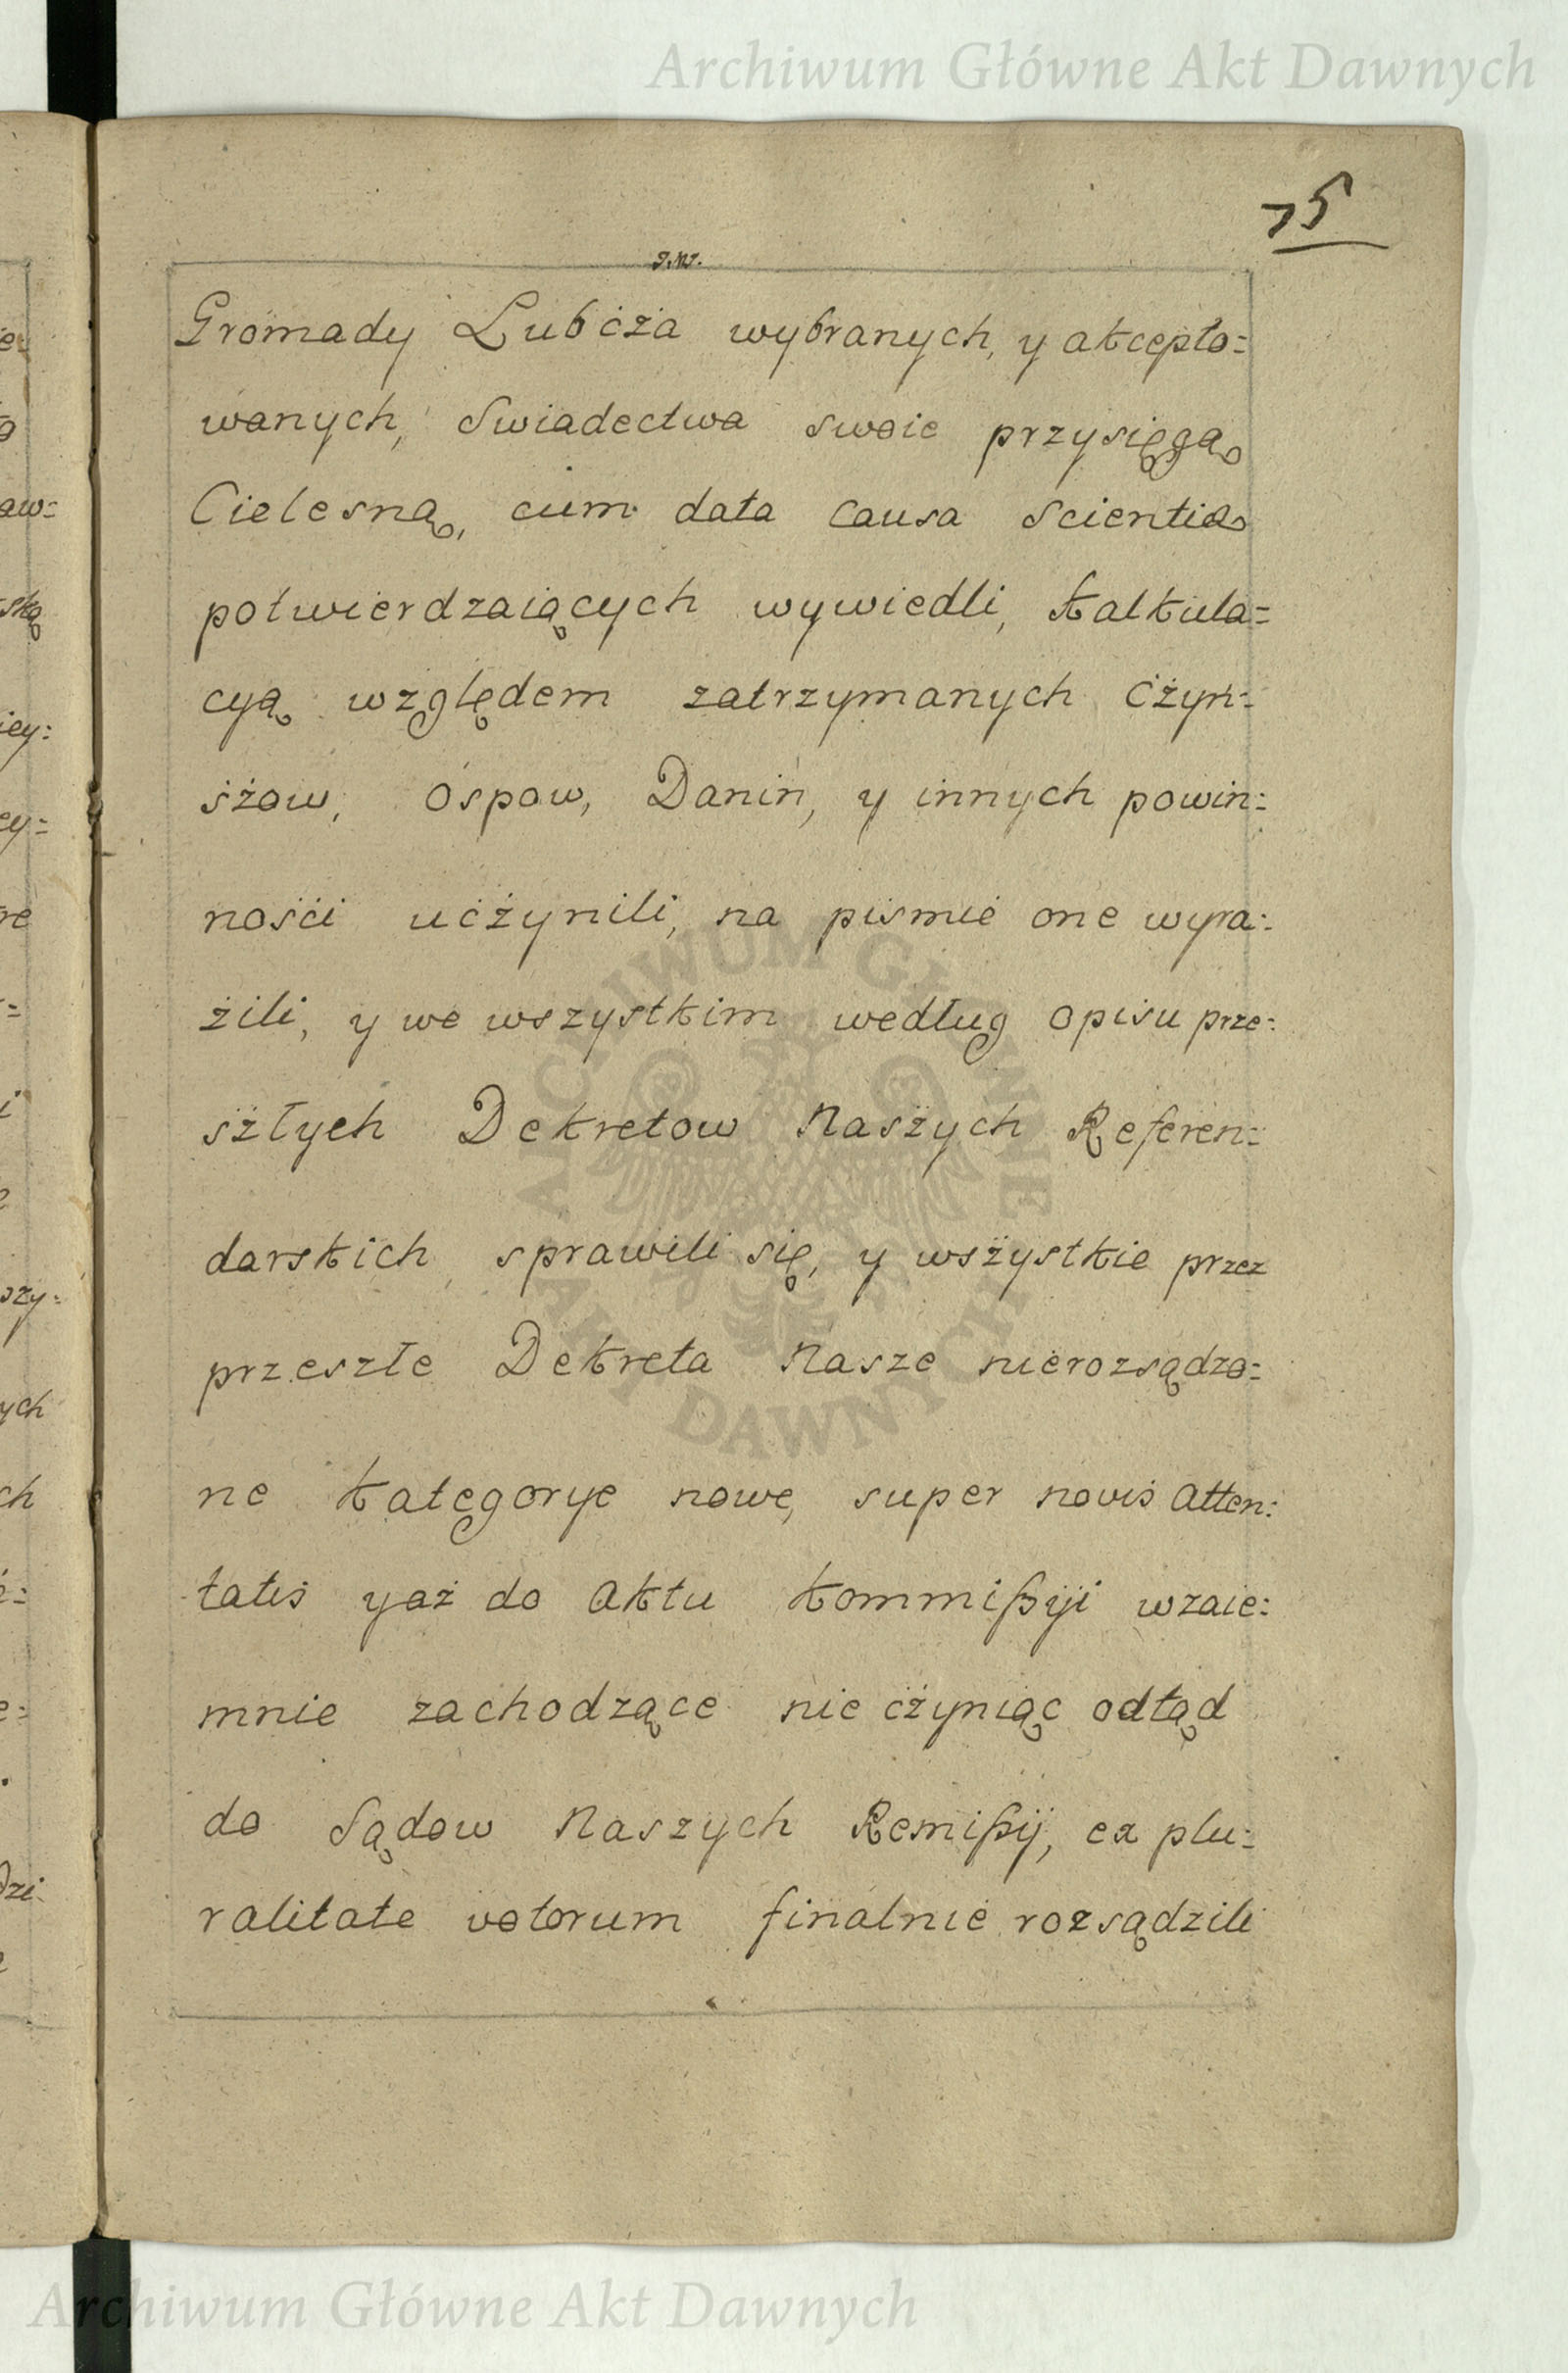 Archiwum Główne Akt Dawnych
75
Gromady Lubcża wybranych, y akcepto=
wanych, Swiadectwa swoie przysięgą
Cielesną, cum data causa scientią
potwierdzaiących wywiedli, kalkula=
cyą względem zatrzymanych Cżyn=
sżow, Ospow, Danin, y innych powin=
nośći ucżynili, na pismie one wyra=
żili, y we wszystkim według Opisu prze=
szłych Dekretow Naszych Referen=
darskich, sprawili się, y wszystkie przez
przeszłe Dekreta Nasze nierozsądzo=
ne kategorye nowe, super novis Atten=
tatis yaż do Aktu kommißyji wzaie=
mnie zachodzące nie cżyniąc odtąd
do Sądow Naszych Remißyj, ex plu=
ralitate votorum finalnie rozsądzili
ARCHIWUM GŁÓWNE AKT DAWNYCH
Archiwum Główne Akt Dawnych